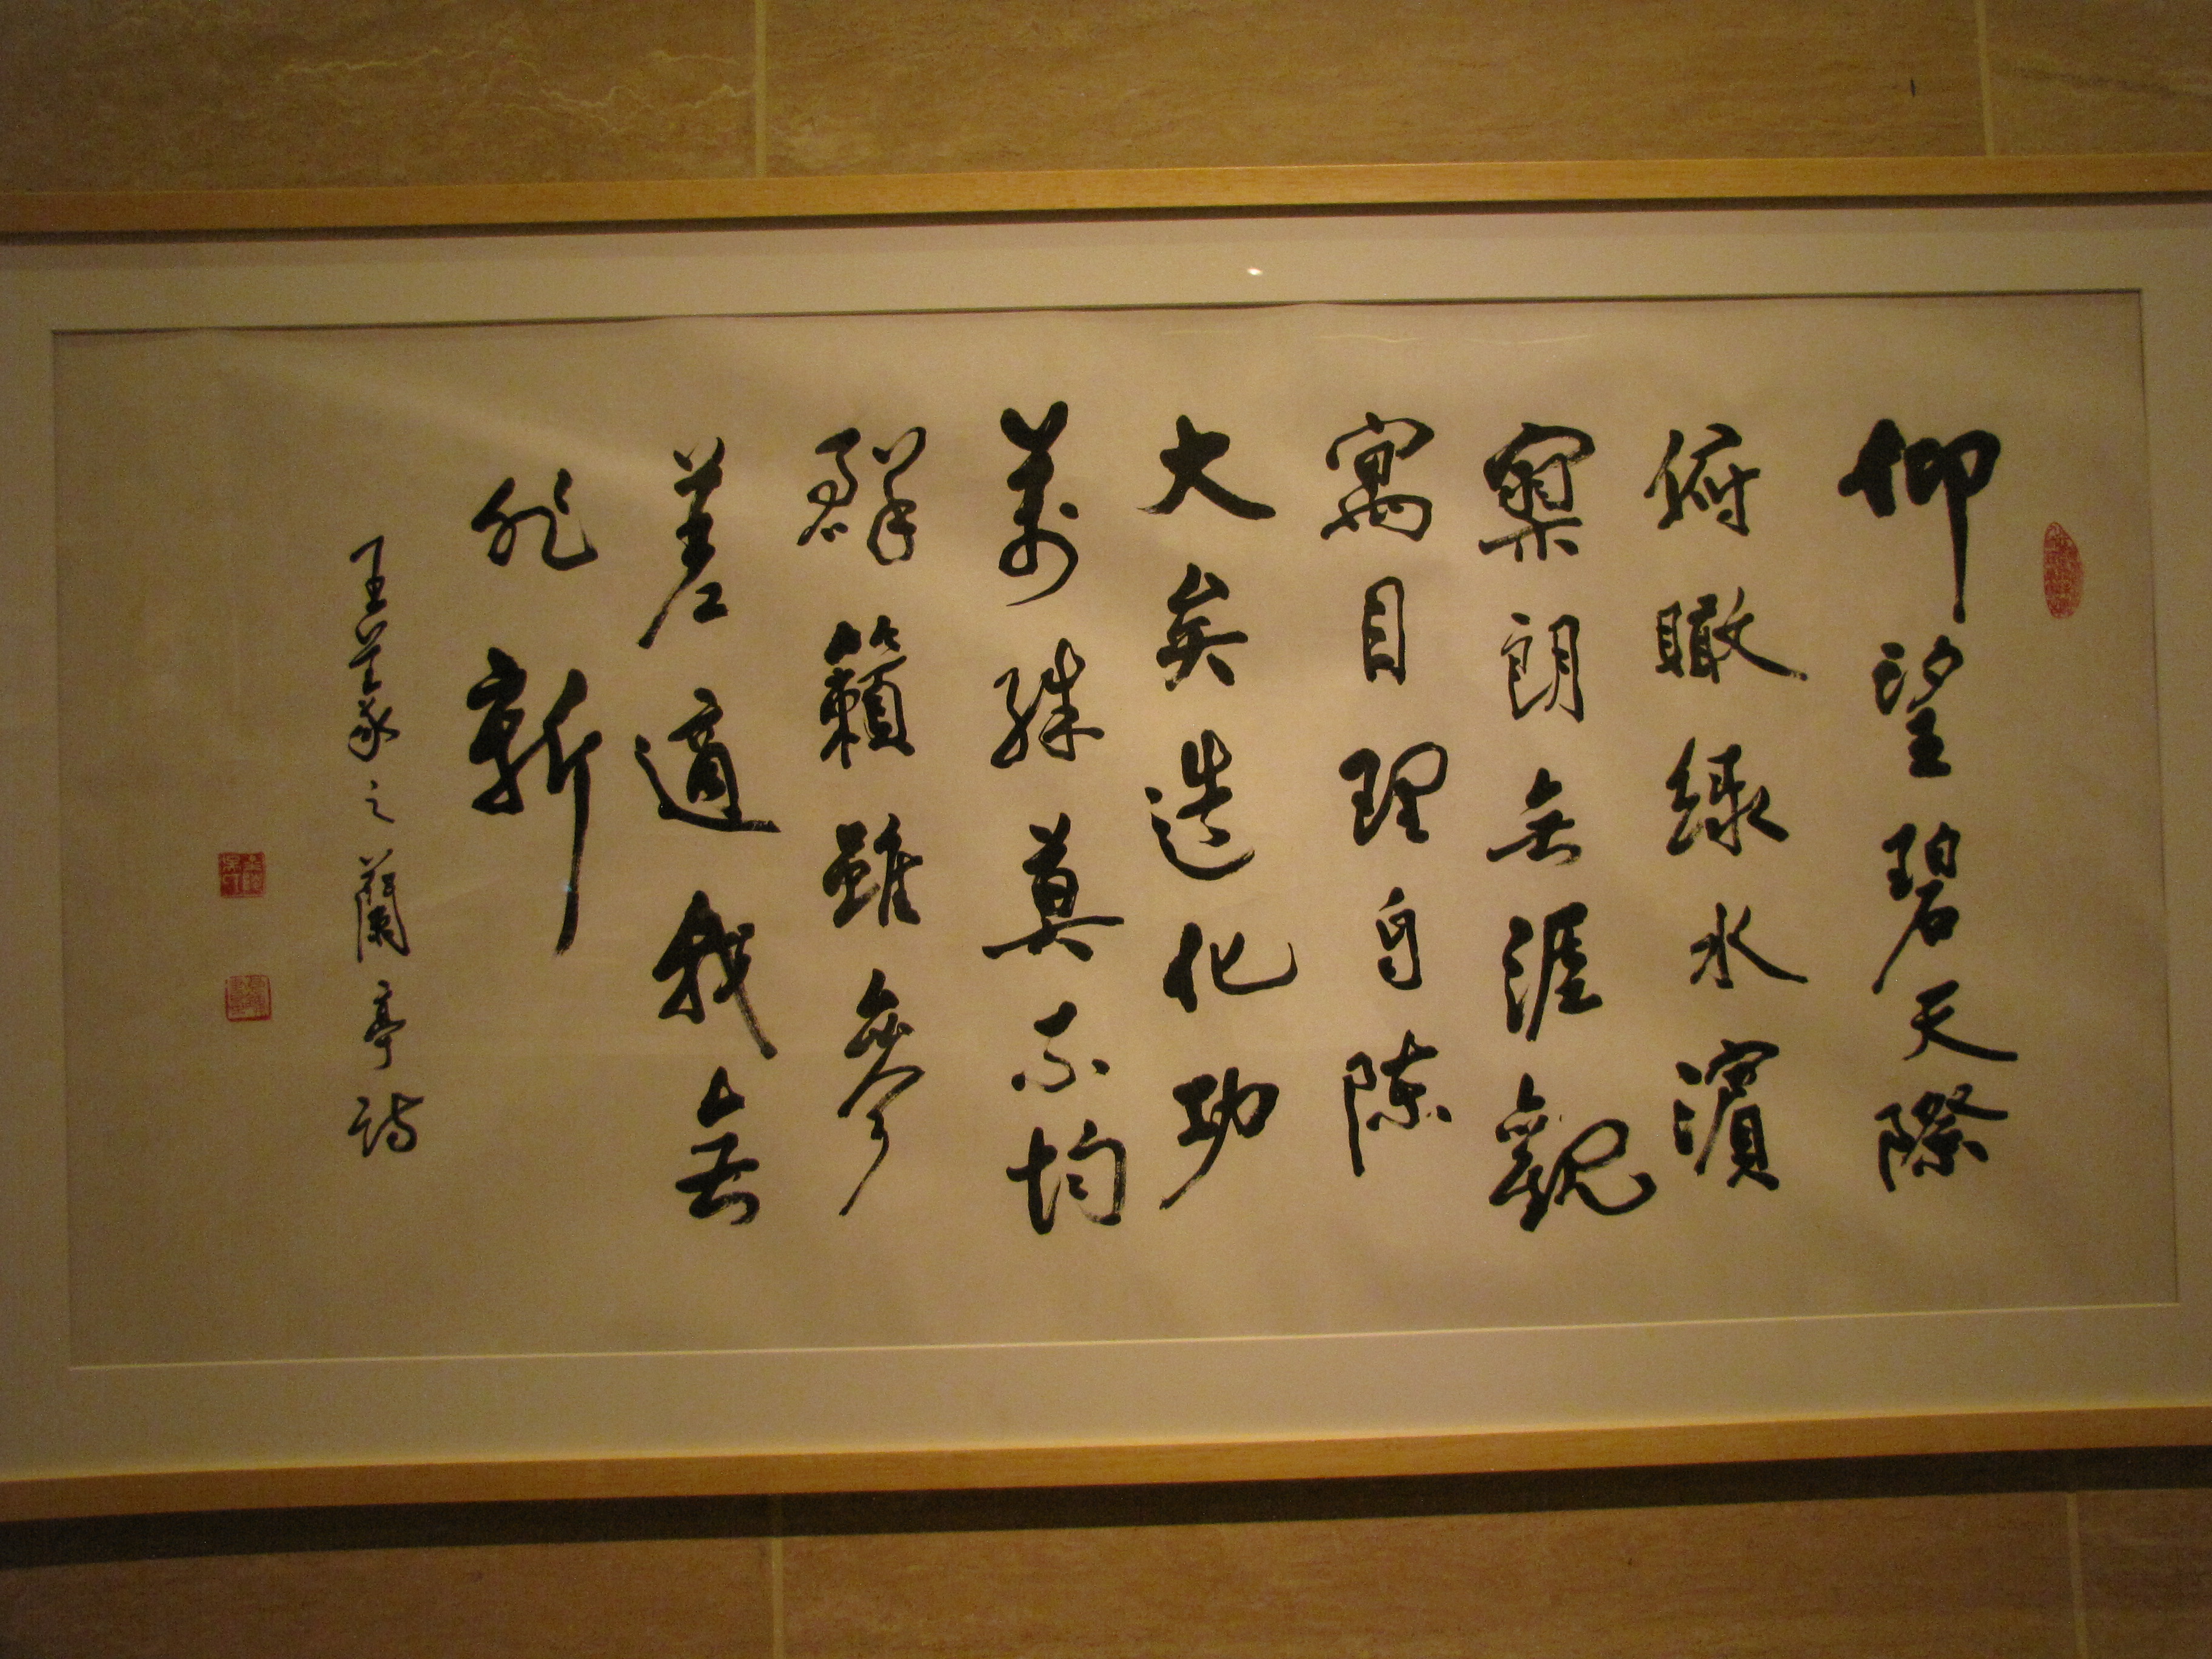 仰望碧天際
俯瞰綠水濱
寥朗無涯觀
寓目理自陳
大矣造化功
萬殊莫不均
群籟雖參
差適我無
非新
王羲之蘭亭詩